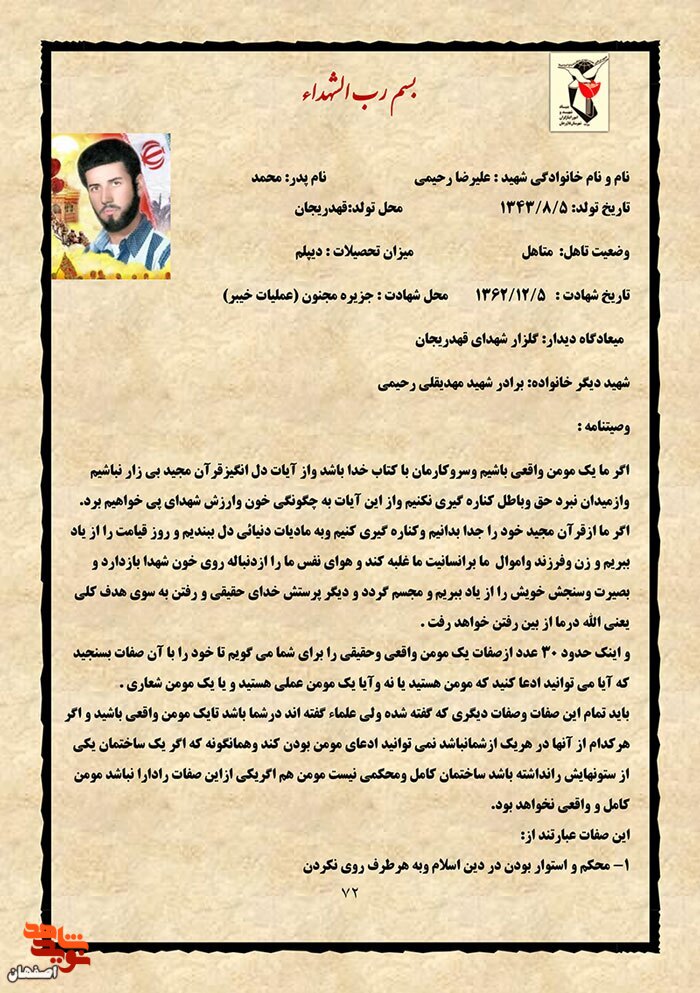 بسم رب الشهداء
نام و نام خانوادگی شهید : علیرضا رحیمی نام پدر: محمد
تاریخ تولد: ۱۳۴۳/۸/۵ محل تولد:قهدریجان
وضعیت تاهل: متاهل میزان تحصیلات : دیپلم
تاریخ شهادت : ۱۳۶۲/۱۲/۵ محل شهادت : جزیره مجنون (عملیات خیبر)
میعادگاه دیدار: گلزار شهدای قهدریجان
شهید دیگر خانواده: برادر شهید مهدیقلی رحیمی
وصیتنامه :
اگر ما یک مومن واقعی باشیم وسروکارمان با کتاب خدا باشد واز آیات دل انگیزقرآن مجید بی زار نباشیم
وازمیدان نبرد حق وباطل کناره گیری نکنیم واز این آیات به چگونگی خون وارزش شهدای پی خواهیم برد.
اگر ما ازقرآن مجید خود را جدا بدانیم وکناره گیری کنیم وبه مادیات دنیائی دل ببندیم و روز قیامت را از یاد
ببریم و زن وفرزند واموال ما برانسانیت ما غلبه کند و هوای نفس ما را ازدنباله روی خون شهدا بازدارد و
بصیرت وسنجش خویش را از یاد ببریم و مجسم گردد و دیگر پرستش خدای حقیقی و رفتن به سوی هدف کلی
یعنی الله درما از بین رفتن خواهد رفت .
و اینک حدود ۳۰ عدد ازصفات یک مومن واقعی وحقیقی را برای شما می گویم تا خود را با آن صفات بسنجید
که آیا می توانید ادعا کنید که مومن هستید یا نه وآیا یک مومن عملی هستید و یا یک مومن شعاری .
باید تمام این صفات وصفات دیگری که گفته شده ولی علماء گفته اند درشما باشد تایک مومن واقعی باشید و اگر
هرکدام از آنها در هریک ازشمانباشد نمی توانید ادعای مومن بودن کند وهمانگونه که اگر یک ساختمان یکی
از ستونهایش رانداشته باشد ساختمان کامل ومحکمی نیست مومن هم اگریکی ازاین صفات رادارا نباشد مومن
کامل و واقعی نخواهد بود.
این صفات عبارتند از:
۱- محکم و استوار بودن در دین اسلام وبه هرطرف روی نکردن
۷۲
نوید شاهد
اصفهان